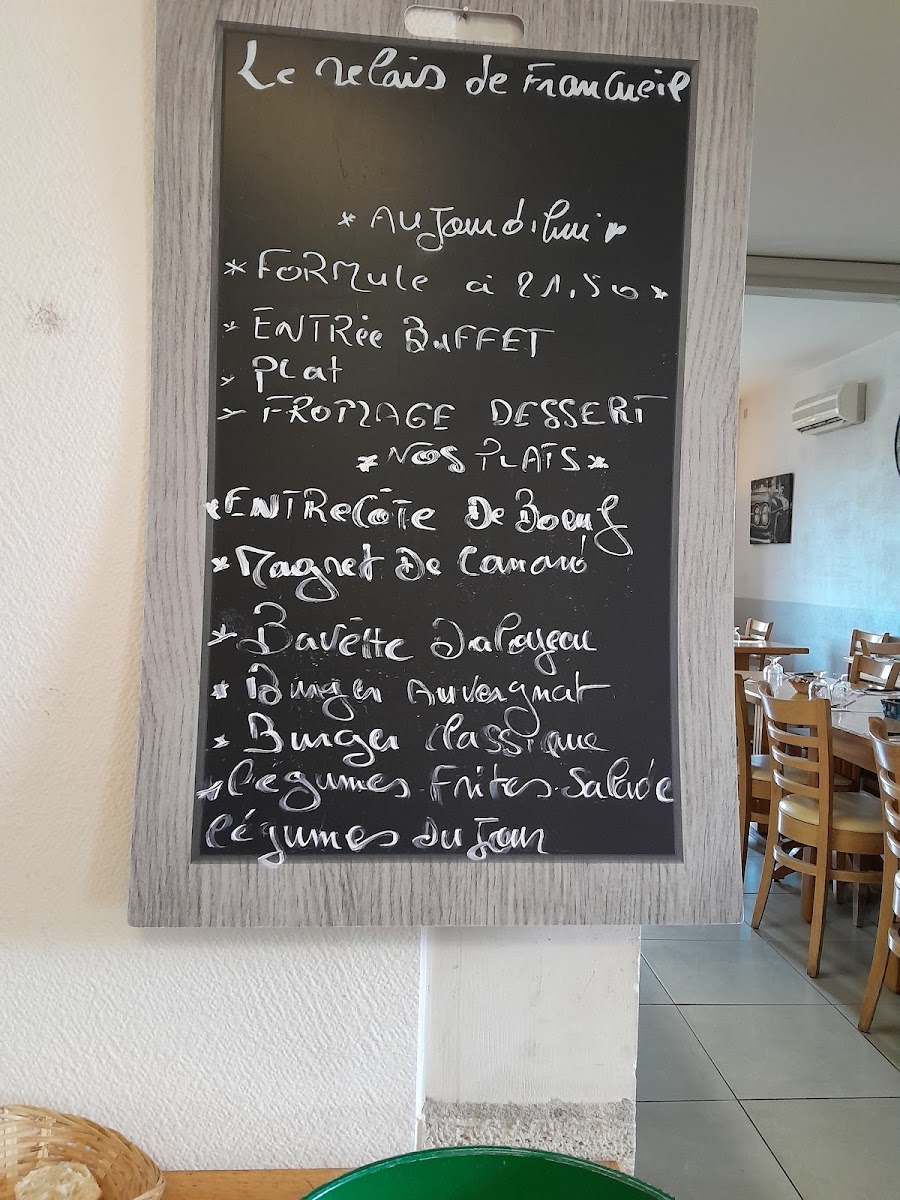 Le relais de Francueil
* AUJourd'hui *
* FORMule à 21,50 *
* ENTRée BuFFET
* PLat
* FROMAGE DESSERT
* NOS PLATS *
* ENTRecôTe De Boeuf
* Magret De Canard
* Bavette Daloyau
* Burger Auvergnat
* Burger Classique
* légumes Frites Salade
légumes Du Jour